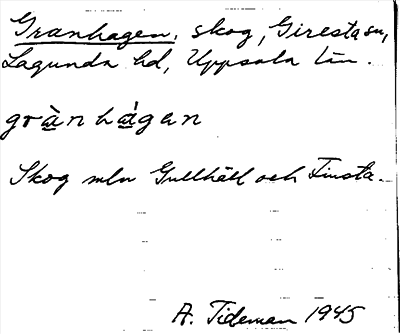 Granhagen, skog, Giresta sn,
Lagunda hd, Uppsala län.
gràn hàgen
Skog mln Gullhäll och Finsta.
A. Tideman 1945